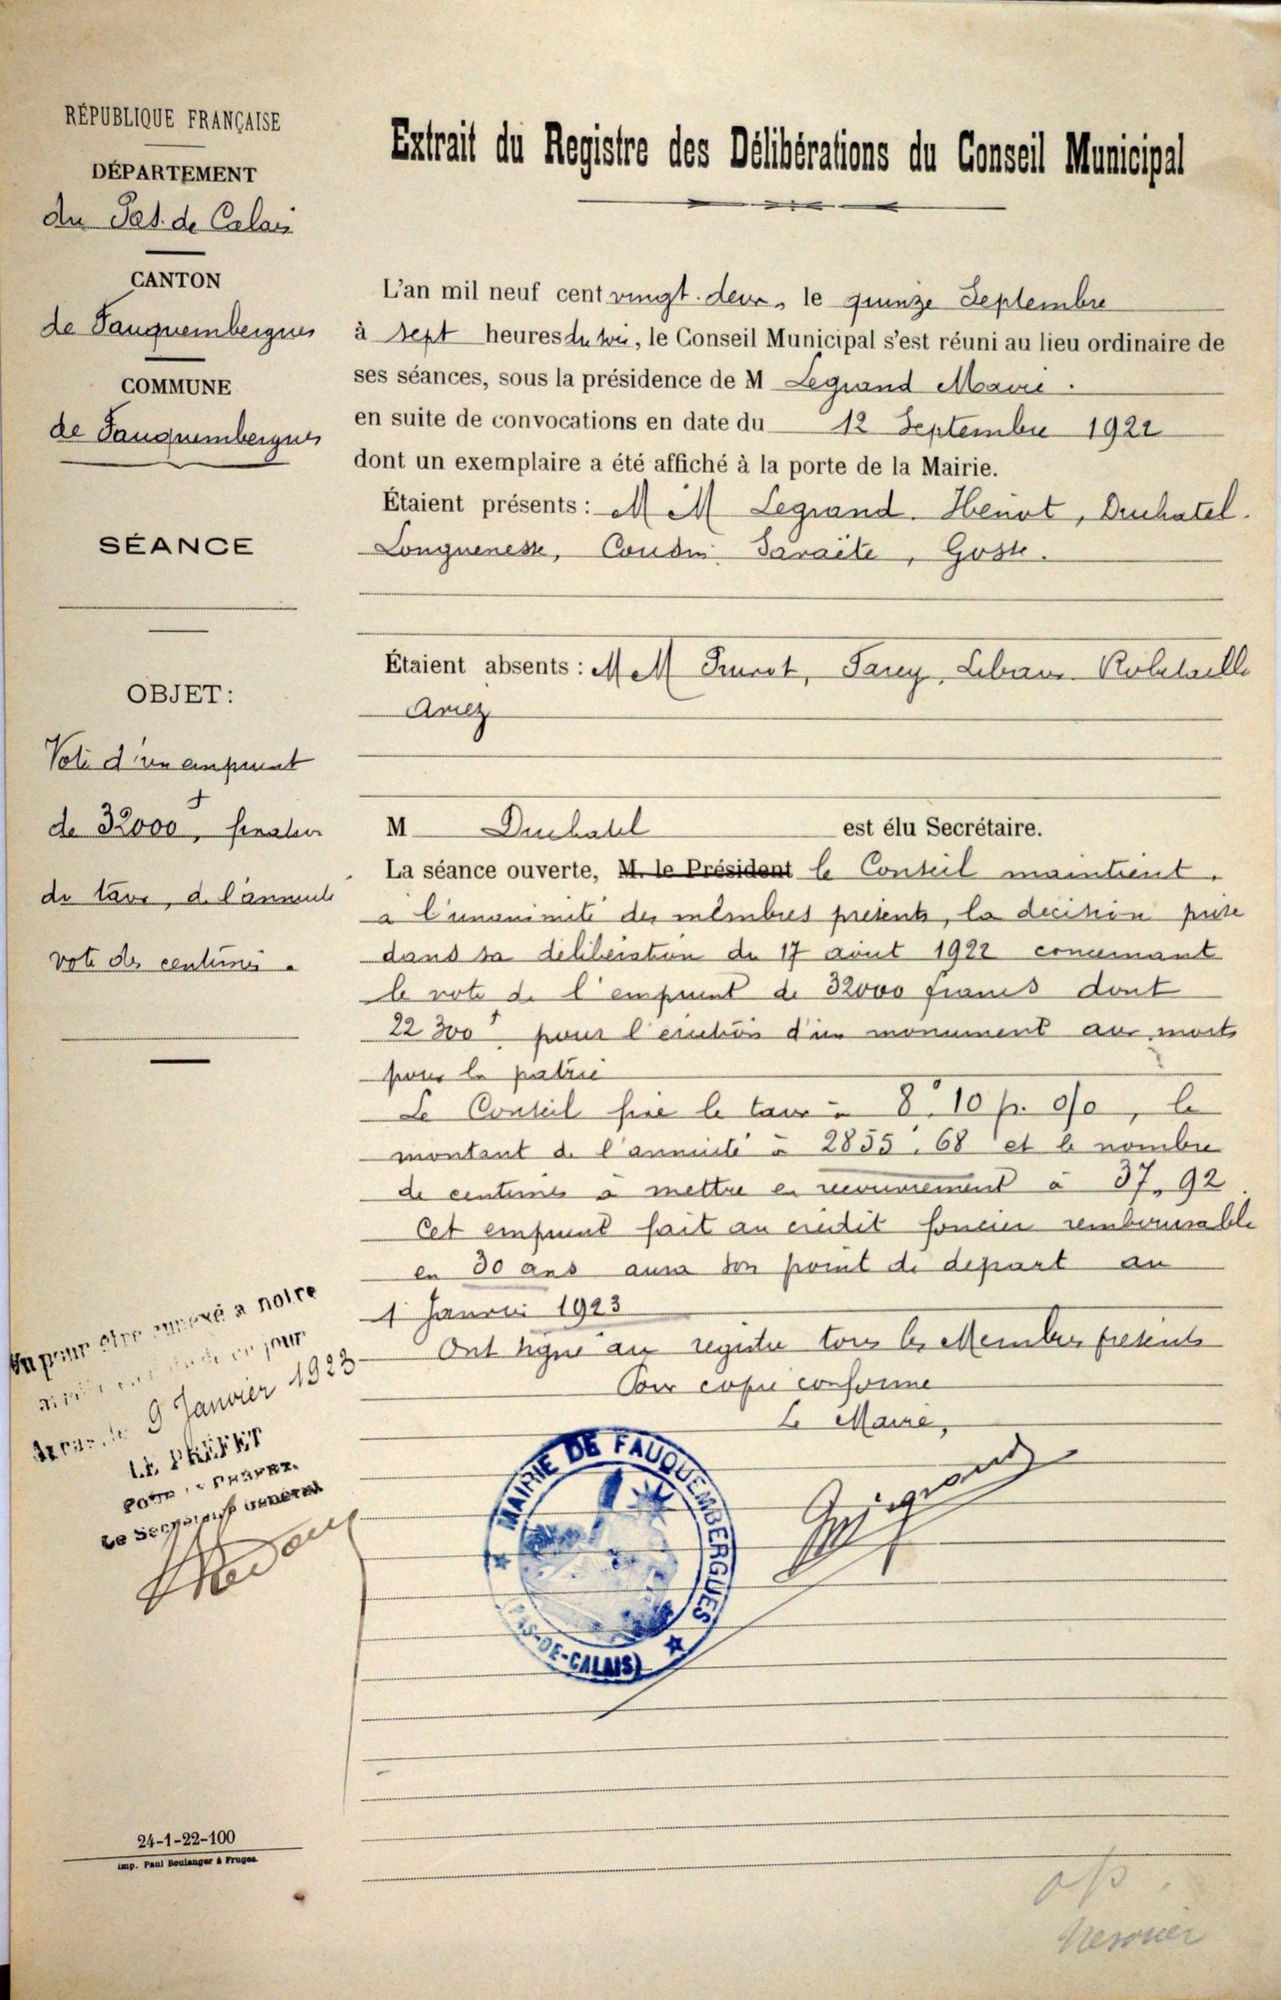 RÉPUBLIQUE FRANÇAISE
DÉPARTEMENT
du Pas. de Calais
CANTON
de Fauquembergues
COMMUNE
de Fauquembergues
SÉANCE
OBJET :
Vote d'un emprunt
de 32000 f, fixation
du taux, de l'annuité
vote des centimes.
Vu pour être annexé a notre
en jour
Arras, le 9 Janvier 1923
LE PRÉFET
Pour le Préfet.
Le Secrétaire Général
24-1-22-100
Imp. Paul Boulanger à Fruges
Extrait du Registre des Délibérations du Conseil Municipal
L'an mil neuf cent vingt. deux, le quinze Septembre
à sept heures du soir, le Conseil Municipal s'est réuni au lieu ordinaire de
ses séances, sous la présidence de M Legrand Maire.
en suite de convocations en date du 12 Septembre 1922
dont un exemplaire a été affiché à la porte de la Mairie.
Étaient présents : M M Legrand. Heniot, Duchatel.
Longuenesse, Cousin Saraète, Gosse.
Étaient absents : M M Pruvot, Tarey, Robitaille
Ariez
M Duchatel est élu Secrétaire.
La séance ouverte, M. le Président le Conseil maintient.
a l'unanimité des membres présents, la decision prise
dans sa deliberation du 17 aout 1922 concernant
le vote de l'emprunt de 32000 francs dont
22 300 f pour l'erection d'un monument aux morts
pour la patrie
Le Conseil fixe le taux à 8.10 p. 0/0, le
montant de l'annuité à 2855 f, 68 et le nombre
de centimes à mettre en recouvrement à 37, 92
Cet emprunt fait au crédit foncier remboursable
en 30 ans aura son point de depart au
1 Janvier 1923
Ont signé au registre tous les Membres présents
Pour copie conforme
Le Maire,
MAIRIE DE FAUQUEMBERGUES
(PAS-DE-CALAIS)
Legrand